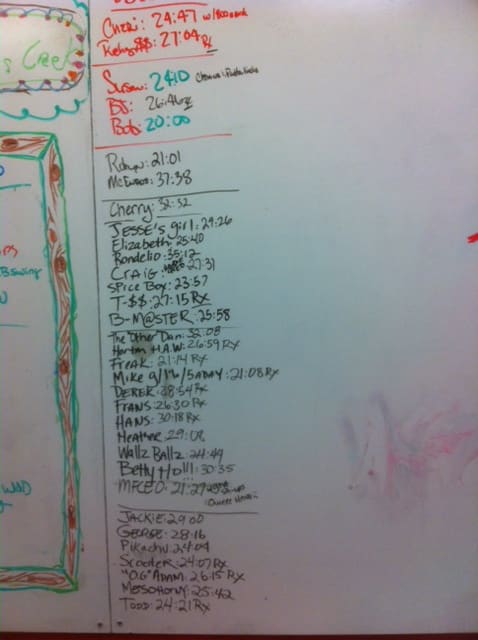 s Creek
Cheri: 24:47 w/800
Kelly $$: 27:04 Rx
Susan: 24:10
BJ: 26:46 Rx
Bob: 20:00
Robyn: 21:01
McEwen: 37:38
Cherry: 32:32
JESSE'S girl: 29:26
Elizabeth: 25:40
Rondelio: 35:12
CRAIG: 27:31
SPICE BOY: 23:57
T-$$: 27:15 RX
B-M@STER: 25:58
The "Other" Dan: 32:08
H.A.W: 26:59 RX
FREAK: 21:14 Rx
Mike 9/1%/5ADAY: 21:08 Rx
DEREK: 28:54 Rx
FRANS: 26:30 Rx
HANS: 30:18 Rx
Heather: 29:08
Wallz Ballz: 24:49
Betty Ho!!!: 30:35
MFCEO: 21:29
JACKIE: 29:00
GEORGE: 28:16
Pikachu: 24:04
Scooter: 24:07 Rx
"O.G" ADAM: 26:15 RX
25:42
TODD: 24:21 Rx
PS
Bswing
WOD